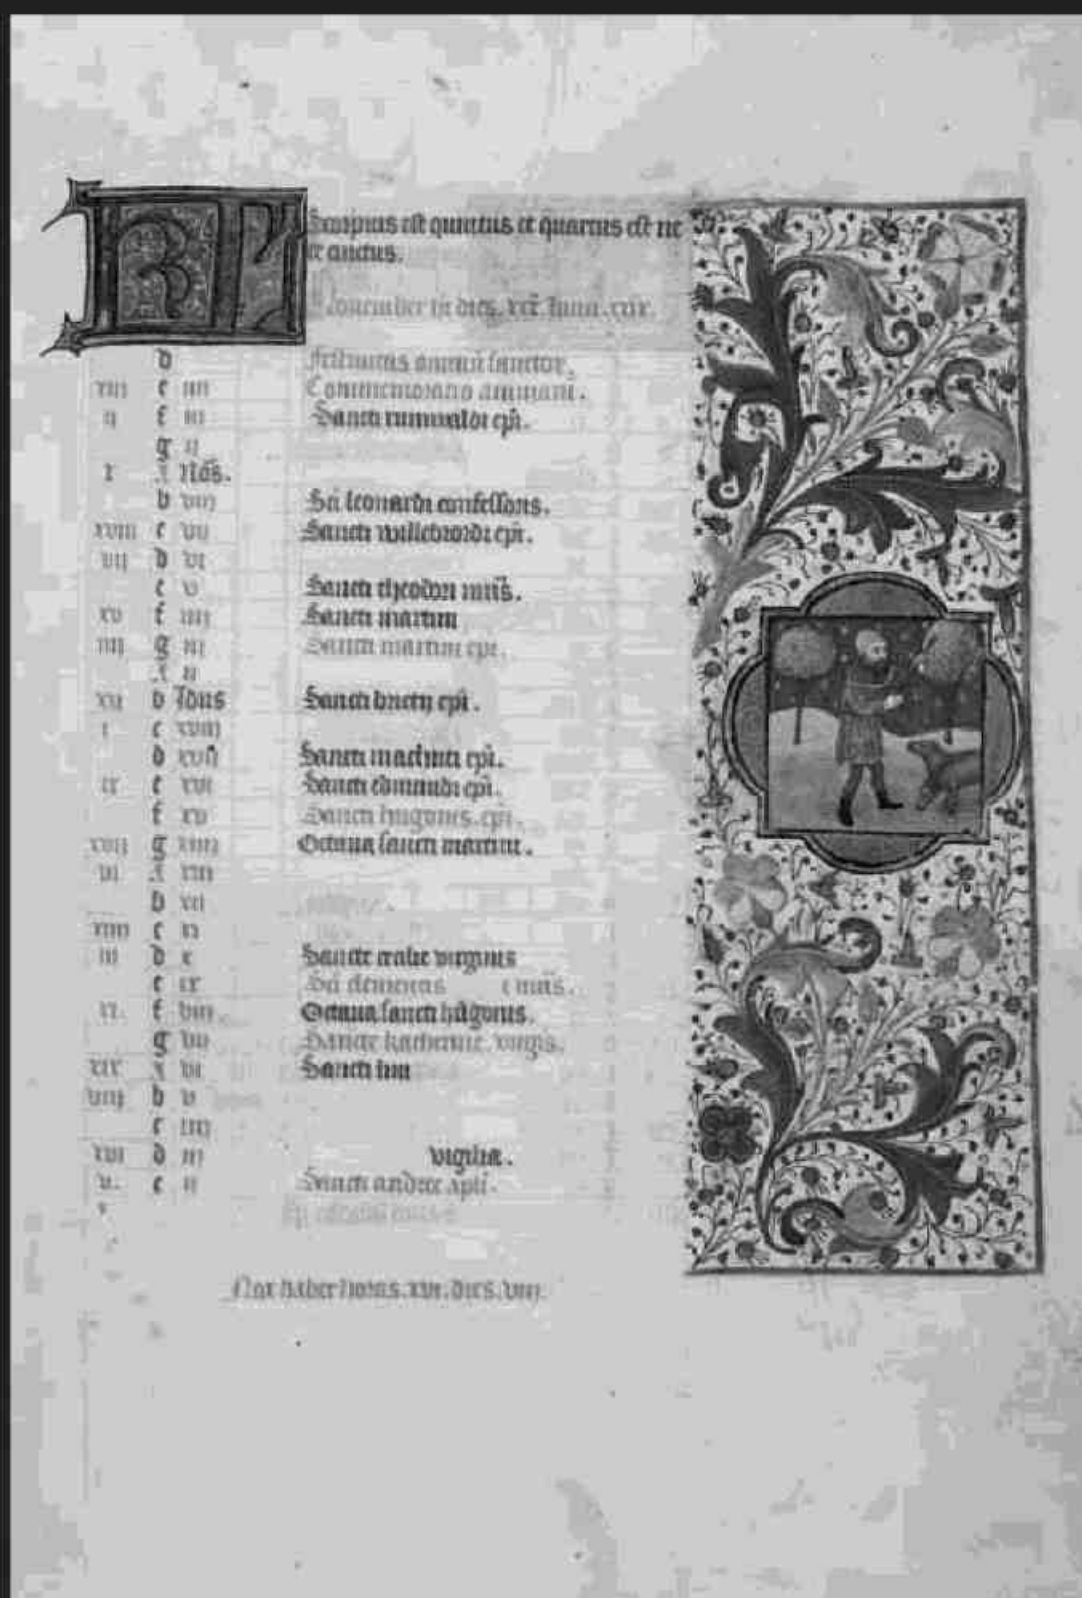 KL Scorpius est quintus et quartus est ne
ce cinctus.
Nouember h dies. xxx. luna. xxx.
d Festiuitas omniū sanctor.
xiii e iiii Commemoratio animarū.
ii f iii Sancti rumwaldi epi.
g ii
x A Nōs.
b viii Sci leonardi confessoris.
xviii c vii Sancti willebrordi epi.
vii d vi
e v Sancti theodori mris.
xv f iiii Sancti martini
iiii g iii Sancti martini epi.
A ii
xii b Idus Sancti bricii epi.
i c xviii
d xvii Sancti machuti epi.
ix e xvi Sancti edmundi epi.
f xv Sancti hugonis. epi.
xvii g xiiii Octaua sancti martini.
vi A xiii
b xii
xiiii c xi
iii d x Sancte cecilie virginis
e ix Sci clementis mris.
xi. f viii Octaua sancti hugonis.
g vii Sancte katherine. virgis.
xix A vi Sancti lini
viii b v
c iiii
xvi d iii vigilia.
v. e ii Sancti andree apli.
Nox habet horas. xvi. dies. viii.